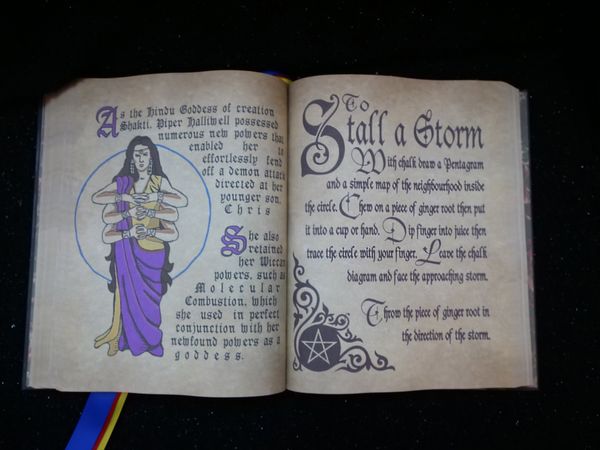 As the Hindu Goddess of creation
Shakti, Piper Halliwell possessed
numerous new powers that
enabled her to
effortlessly fend
off a demon attack
directed at her
younger son,
Chris
She also
retained
her Wiccan
powers, such as
Molecular
Combustion, which
she used in perfect
conjunction with her
newfound powers as a
goddess.
To
Stall a Storm
With chalk draw a Pentagram
and a simple map of the neighbourhood inside
the circle. Chew on a piece of ginger root then put
it into a cup or hand. Dip finger into juice then
trace the circle with your finger. Leave the chalk
diagram and face the approaching storm.
Throw the piece of ginger root in
the direction of the storm.